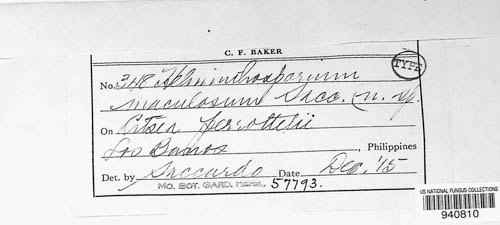 C. F. BAKER
TYPE
No. 348 Helminthosporium
maculosum Sacc. (n. sp.
On Litsea perrottetii
Los Banos, Philippines
Det. by Saccardo Date Dec. '15
MO. BOT. GARD. HERB. 57793.
US NATIONAL FUNGUS COLLECTIONS
940810